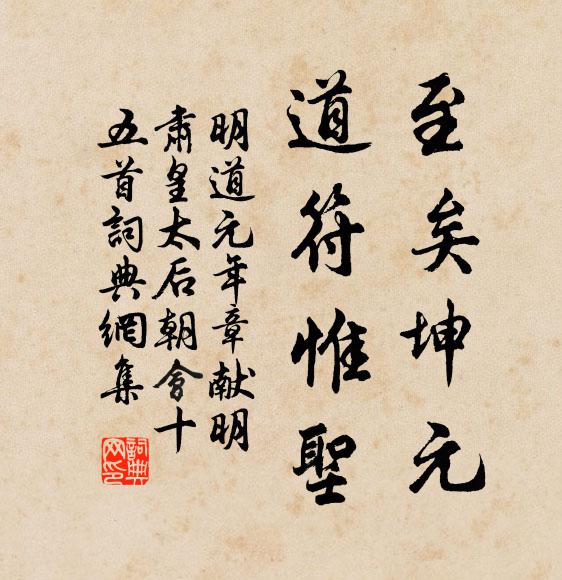 至矣坤元
道符惟聖
明道元年章献明
肅皇太后朝會十
五首詞典網集
詞典
网印